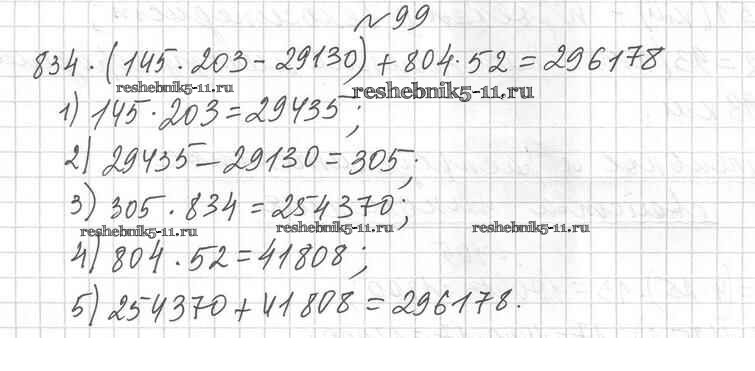 №99
834·(145·203-29130)+804·52=296178
reshebnik5-11.ru reshebnik5-11.ru
1) 145·203=29435;
2) 29435-29130=305;
3) 305·834=254370;
reshebnik5-11.ru reshebnik5-11.ru reshebnik5-11.ru
4) 804·52=41808;
5) 254370+41808=296178.